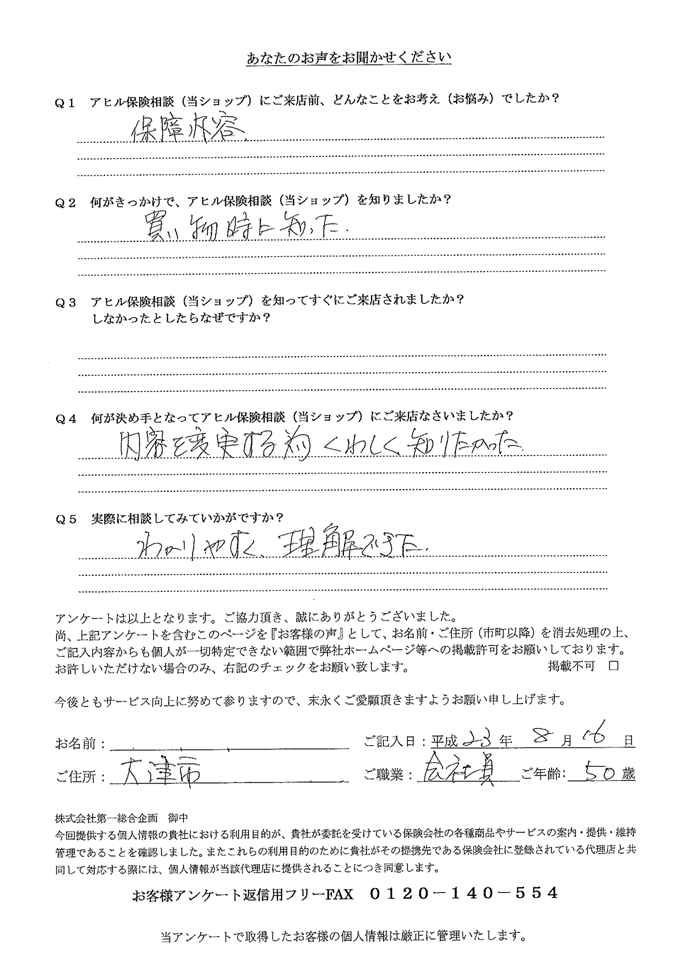 あなたのお声をお聞かせください
Q1 アヒル保険相談（当ショップ）にご来店前、どんなことをお考え（お悩み）でしたか？
保障内容
Q2 何がきっかけで、アヒル保険相談（当ショップ）を知りましたか？
買い物時に知った.
Q3 アヒル保険相談（当ショップ）を知ってすぐにご来店されましたか？
しなかったとしたらなぜですか？
Q4 何が決め手となってアヒル保険相談（当ショップ）にご来店なさいましたか？
内容を変更する為 くわしく知りたかった
Q5 実際に相談してみていかがですか？
わかりやすく、理解できた.
アンケートは以上となります。ご協力頂き、誠にありがとうございました。
尚、上記アンケートを含むこのページを『お客様の声』として、お名前・ご住所（市町以降）を消去処理の上、
ご記入内容からも個人が一切特定できない範囲で弊社ホームページ等への掲載許可をお願いしております。
お許しいただけない場合のみ、右記のチェックをお願い致します。 掲載不可 □
今後ともサービス向上に努めて参りますので、末永くご愛願頂きますようお願い申し上げます。
お名前： ご記入日：平成 23 年 8 月 16 日
ご住所： 大津市 ご職業： 会社員 ご年齢： 50 歳
株式会社第一総合企画 御中
今回提供する個人情報の貴社における利用目的が、貴社が委託を受けている保険会社の各種商品やサービスの案内・提供・維持
管理であることを確認しました。またこれらの利用目的のために貴社がその提携先である保険会社に登録されている代理店と共
同して対応する際には、個人情報が当該代理店に提供されることにつき同意します。
お客様アンケート返信用フリーFAX 0120－140－554
当アンケートで取得したお客様の個人情報は厳正に管理いたします。